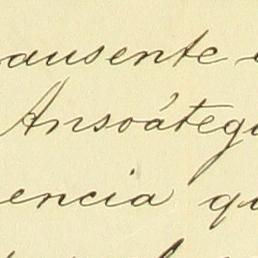 ausente
Ansoátegu
encia qu